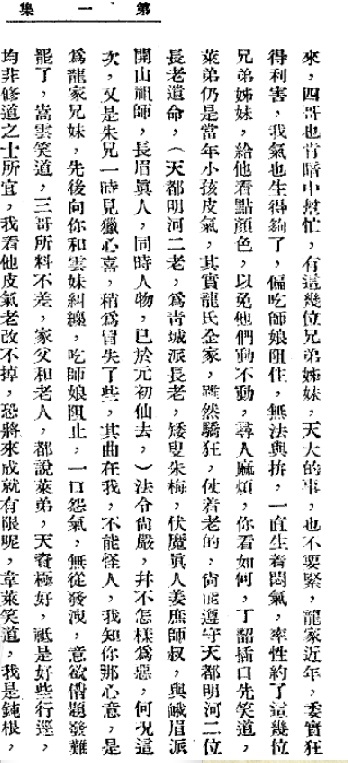 第一集
來，四哥也肯暗中幫忙，有這幾位兄弟姊妹，天大的事，也不要緊，龍家近年，委實狂
得利害，我氣也生得夠了，偏吃師娘阻住，無法與拚，一直生着悶氣，率性約了這幾位
兄弟姊妹，給他看點顏色，以免他們動不動，尋人麻煩，你看如何，丁韶插口先笑道，
萊弟仍是當年小孩皮氣，其實龍氏全家，雖然驕狂，仗着老的，尙能遵守天都明河二位
長老道命，（天都明河二老，爲靑城派長老，矮叟朱梅，伏魔眞人姜庶師叔，與峨眉派
開山祖師，長眉眞人，同時人物，已於元初仙去，）法令尙嚴，幷不怎樣爲惡，何况這
次，又是朱兄一時見獵心喜，稍爲冒失了些，其曲在我，不能怪人，我知你那心意，是
爲龍家兄妹，先後向你和雲妹糾纏，吃師娘阻止，一口怨氣，無從發洩，意欲借題發難
罷了，嵩雲笑道，三哥所料不差，家父和老人，都說萊弟，天資極好，祇是好些行逕，
均非修道之士所宜，我看他皮氣老改不掉，恐將來成就有限呢，韋萊笑道，我是鈍根，